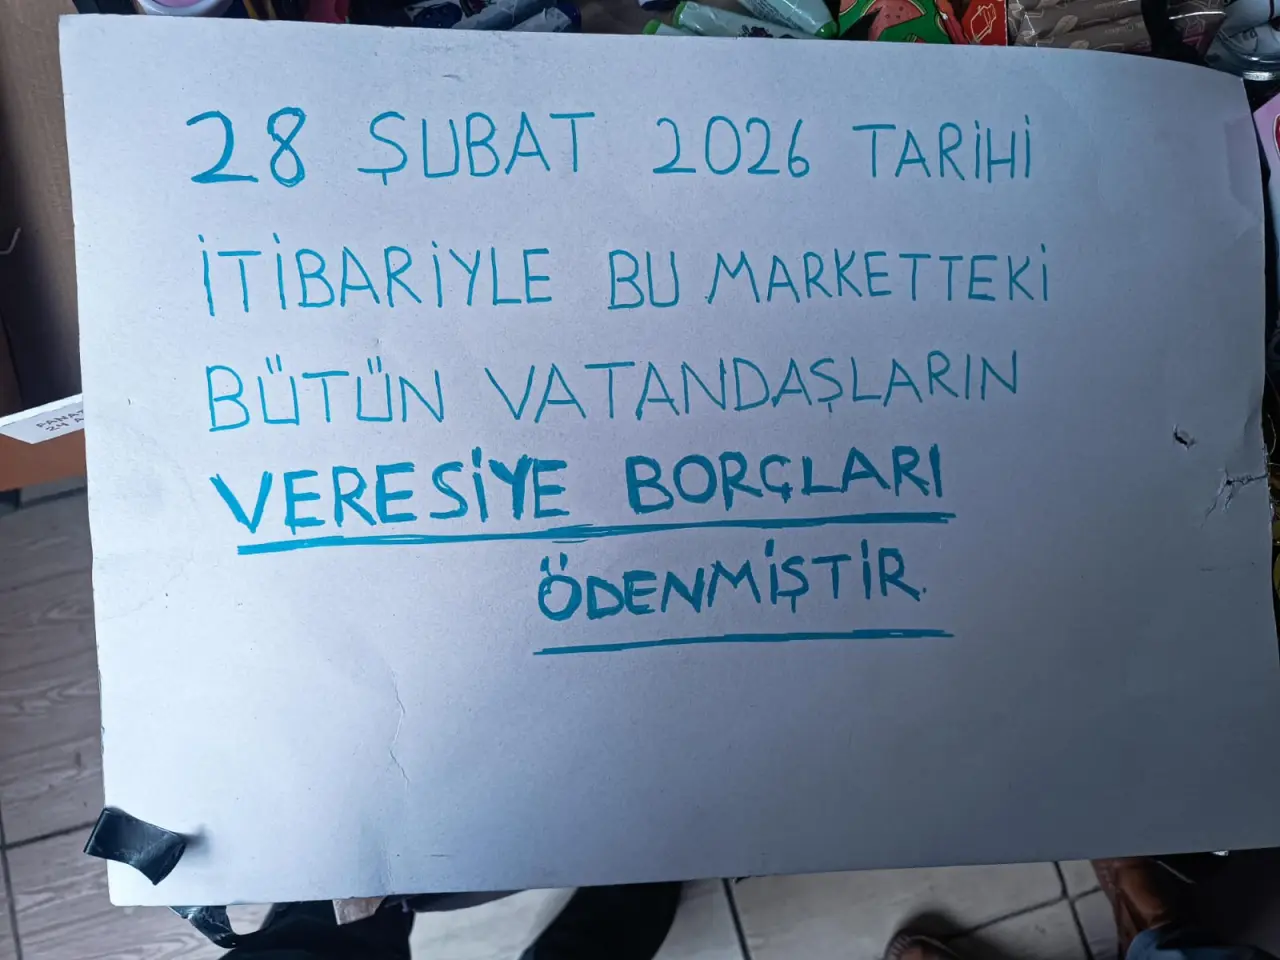 28 ŞUBAT 2026 TARİHİ
İTİBARİYLE BU MARKETTEKİ
BÜTÜN VATANDAŞLARIN
VERESİYE BORÇLARI
ÖDENMİŞTİR.